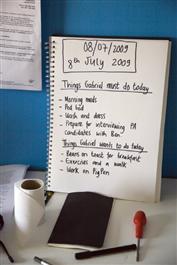 08/07/2009
8th July 2009
Things Gabriel must do today
- Morning meds
- Wash and dress
- Prepare for interviewing PA
candidates with Ben
Things Gabriel wants to do today
- Beans on toast for breakfast
- Exercises and a walk
- Work on PigPen